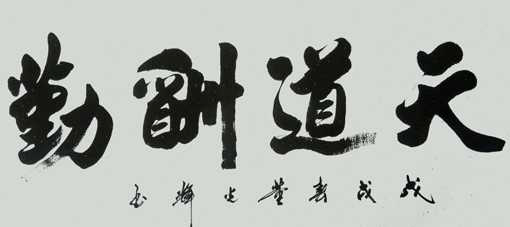 天道酬勤
戊戌春